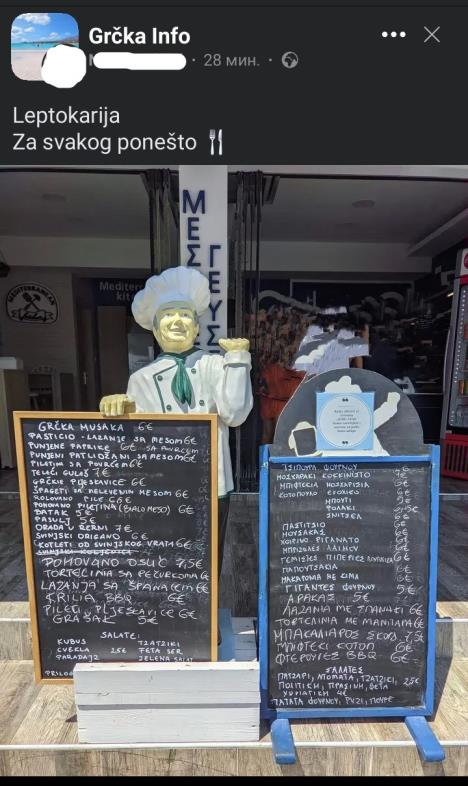 Grčka Info
28 мин.
Leptokarija
Za svakog ponešto
ΜΕΣ
ΓΕΥΣ
MEDITERRANEAN
Mediter
GRČKA MUSAKA 6€
PASTICIO - LAZANJE SA MESOM 6€
PUNJENE PAPRIKE 6€ SA POVRĆEM
PUNJENI PATLIDŽANI SA MESOM 6€
PILETINA SA POVRĆEM 6€
TELEĆI GULAŠ 7€
GRČKE PLJESKAVICE 6€
ŠPAGETI SA MELEVENIM MESOM 6€
ROLOVANO PILE 6€
POHOVANO PILETINA (BIALO MESO) 6€
BATAK 5€
PASULJ 5€
ORADA U RERNI 7€
SVINJSKI ORIGANO 6€
KOTLETI OD SVINJSKOG VRATA 6€
POHOVANO OSLIĆ 7,5€
TORTELINIA SA PEČURKOMA 6€
LAZANJA SA SPANAĆEM 6€
KRILIA BBQ 6€
PILEĆI PLJESKAVICE 6€
GRAŠAK 5€
SALATE:
KUBUS TZATZIKI
CVEKLA 2,5€ FETA SER
PARADAJZ ZELENA SALAT
PRILOG
ΤΣΙΠΟΥΡΑ ΦΟΥΡΝΟΥ
ΜΟΣΧΑΡΑΚΙ ΚΟΚΚΙΝΙΣΤΟ 7€
ΜΠΙΦΤΕΚΙΑ ΜΟΣΧΑΡΙΣΙΑ 6€
ΚΟΤΟΠΟΥΛΟ
ΜΠΟΥΤΙ
ΣΝΙΤΣΕΛ 6€
ΠΑΣΤΙΤΣΙΟ 6€
ΜΟΥΣΑΚΑΣ 6€
ΧΟΙΡΙΝΟ ΡΙΓΑΝΑΤΟ 6€
ΜΠΡΙΖΟΛΕΣ ΛΑΙΜΟΥ 6€
ΓΕΜΙΣΤΕΣ ΠΙΠΕΡΙΕΣ
ΠΑΠΟΥΤΣΑΚΙΑ 6€
ΜΑΚΑΡΟΝΙΑ ΜΕ ΚΙΜΑ 6€
ΓΙΓΑΝΤΕΣ ΦΟΥΡΝΟΥ 5€
ΑΡΑΚΑΣ 5€
ΛΑΖΑΝΙΑ ΜΕ ΣΠΑΝΑΚΙ 6€
ΤΟΡΤΕΛΙΝΙΑ ΜΕ ΜΑΝΙΤΑΡΙΑ 6€
ΜΠΑΚΑΛΙΑΡΟΣ ΣΚΟΡΔ. 7,5€
ΜΠΙΦΤΕΚΙ ΚΟΤΟΠ 6€
ΦΤΕΡΟΥΓΕΣ BBQ 6€
ΣΑΛΑΤΕΣ
ΠΑΤΖΑΡΙ, ΝΤΟΜΑΤΑ, ΤΖΑΤΖΙΚΙ, 2,5€
ΠΟΛΙΤΙΚΗ, ΠΡΑΣΙΝΗ, ΦΕΤΑ
ΧΩΡΙΑΤΙΚΗ 4€
ΠΑΤΑΤΑ ΦΟΥΡΝΟΥ, ΡΥΖΙ, ΠΟΥΡΕ